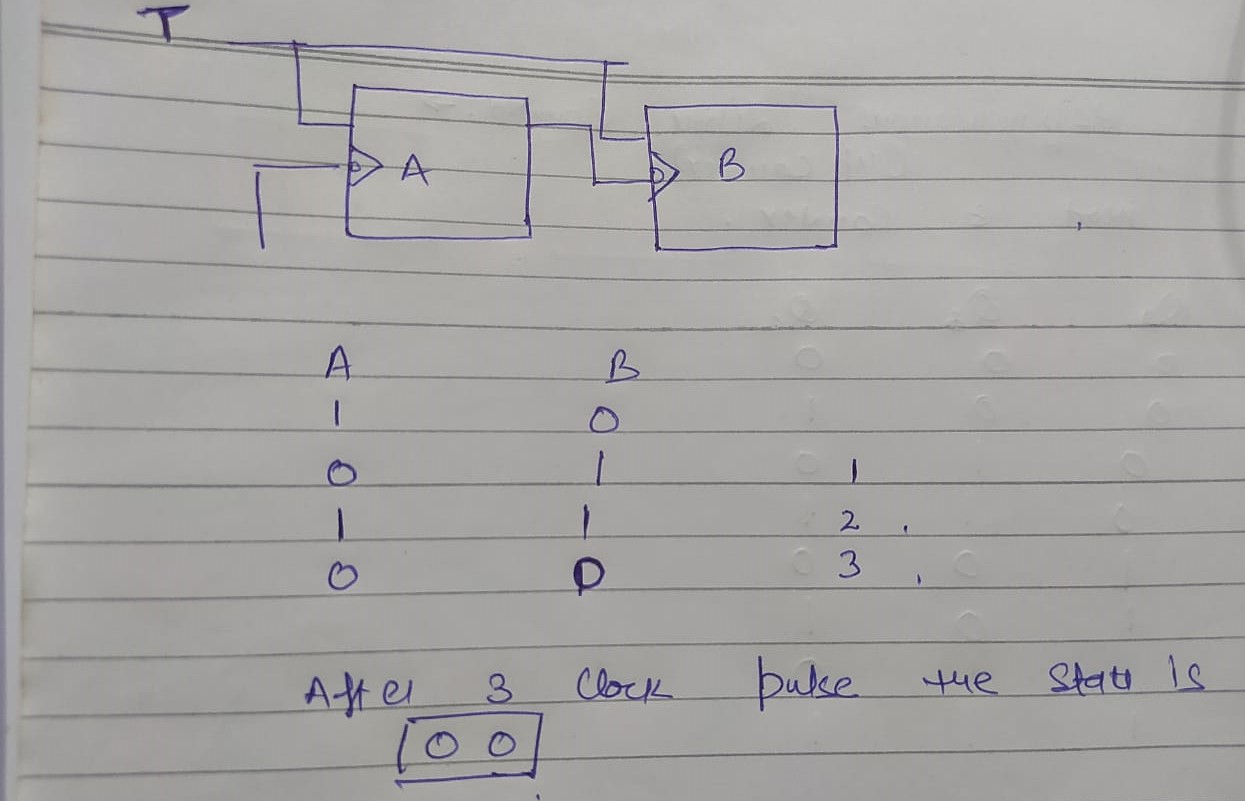 T
A B
A B
1 0
0 1 1
1 1 2 .
0 0 3 .
After 3 Clock pulse the State is
0 0